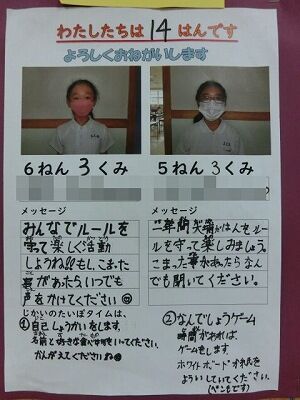 わたしたちは 14 はんです
よろしくおねがいします
6ねん 3 くみ
5ねん 3 くみ
メッセージ
みんなでルールを
守って楽しく活動
しようね!!もし、こまった
事があったら、いつでも
声をかけてください
メッセージ
一年間笑顔がはんを、ルー
ルを守って楽しみましょう。
こまった事があったらなん
でも聞いてください。
じかいのたいぼタイムは、
①自己しょうかいをします。
名前と好きな食べ物を言ってください。
かんがえてくださいね
②なんでしょうゲーム
時間があれば、
ゲームをします。
ホワイトボードがお礼を
よういしていてください。
(ペンも)